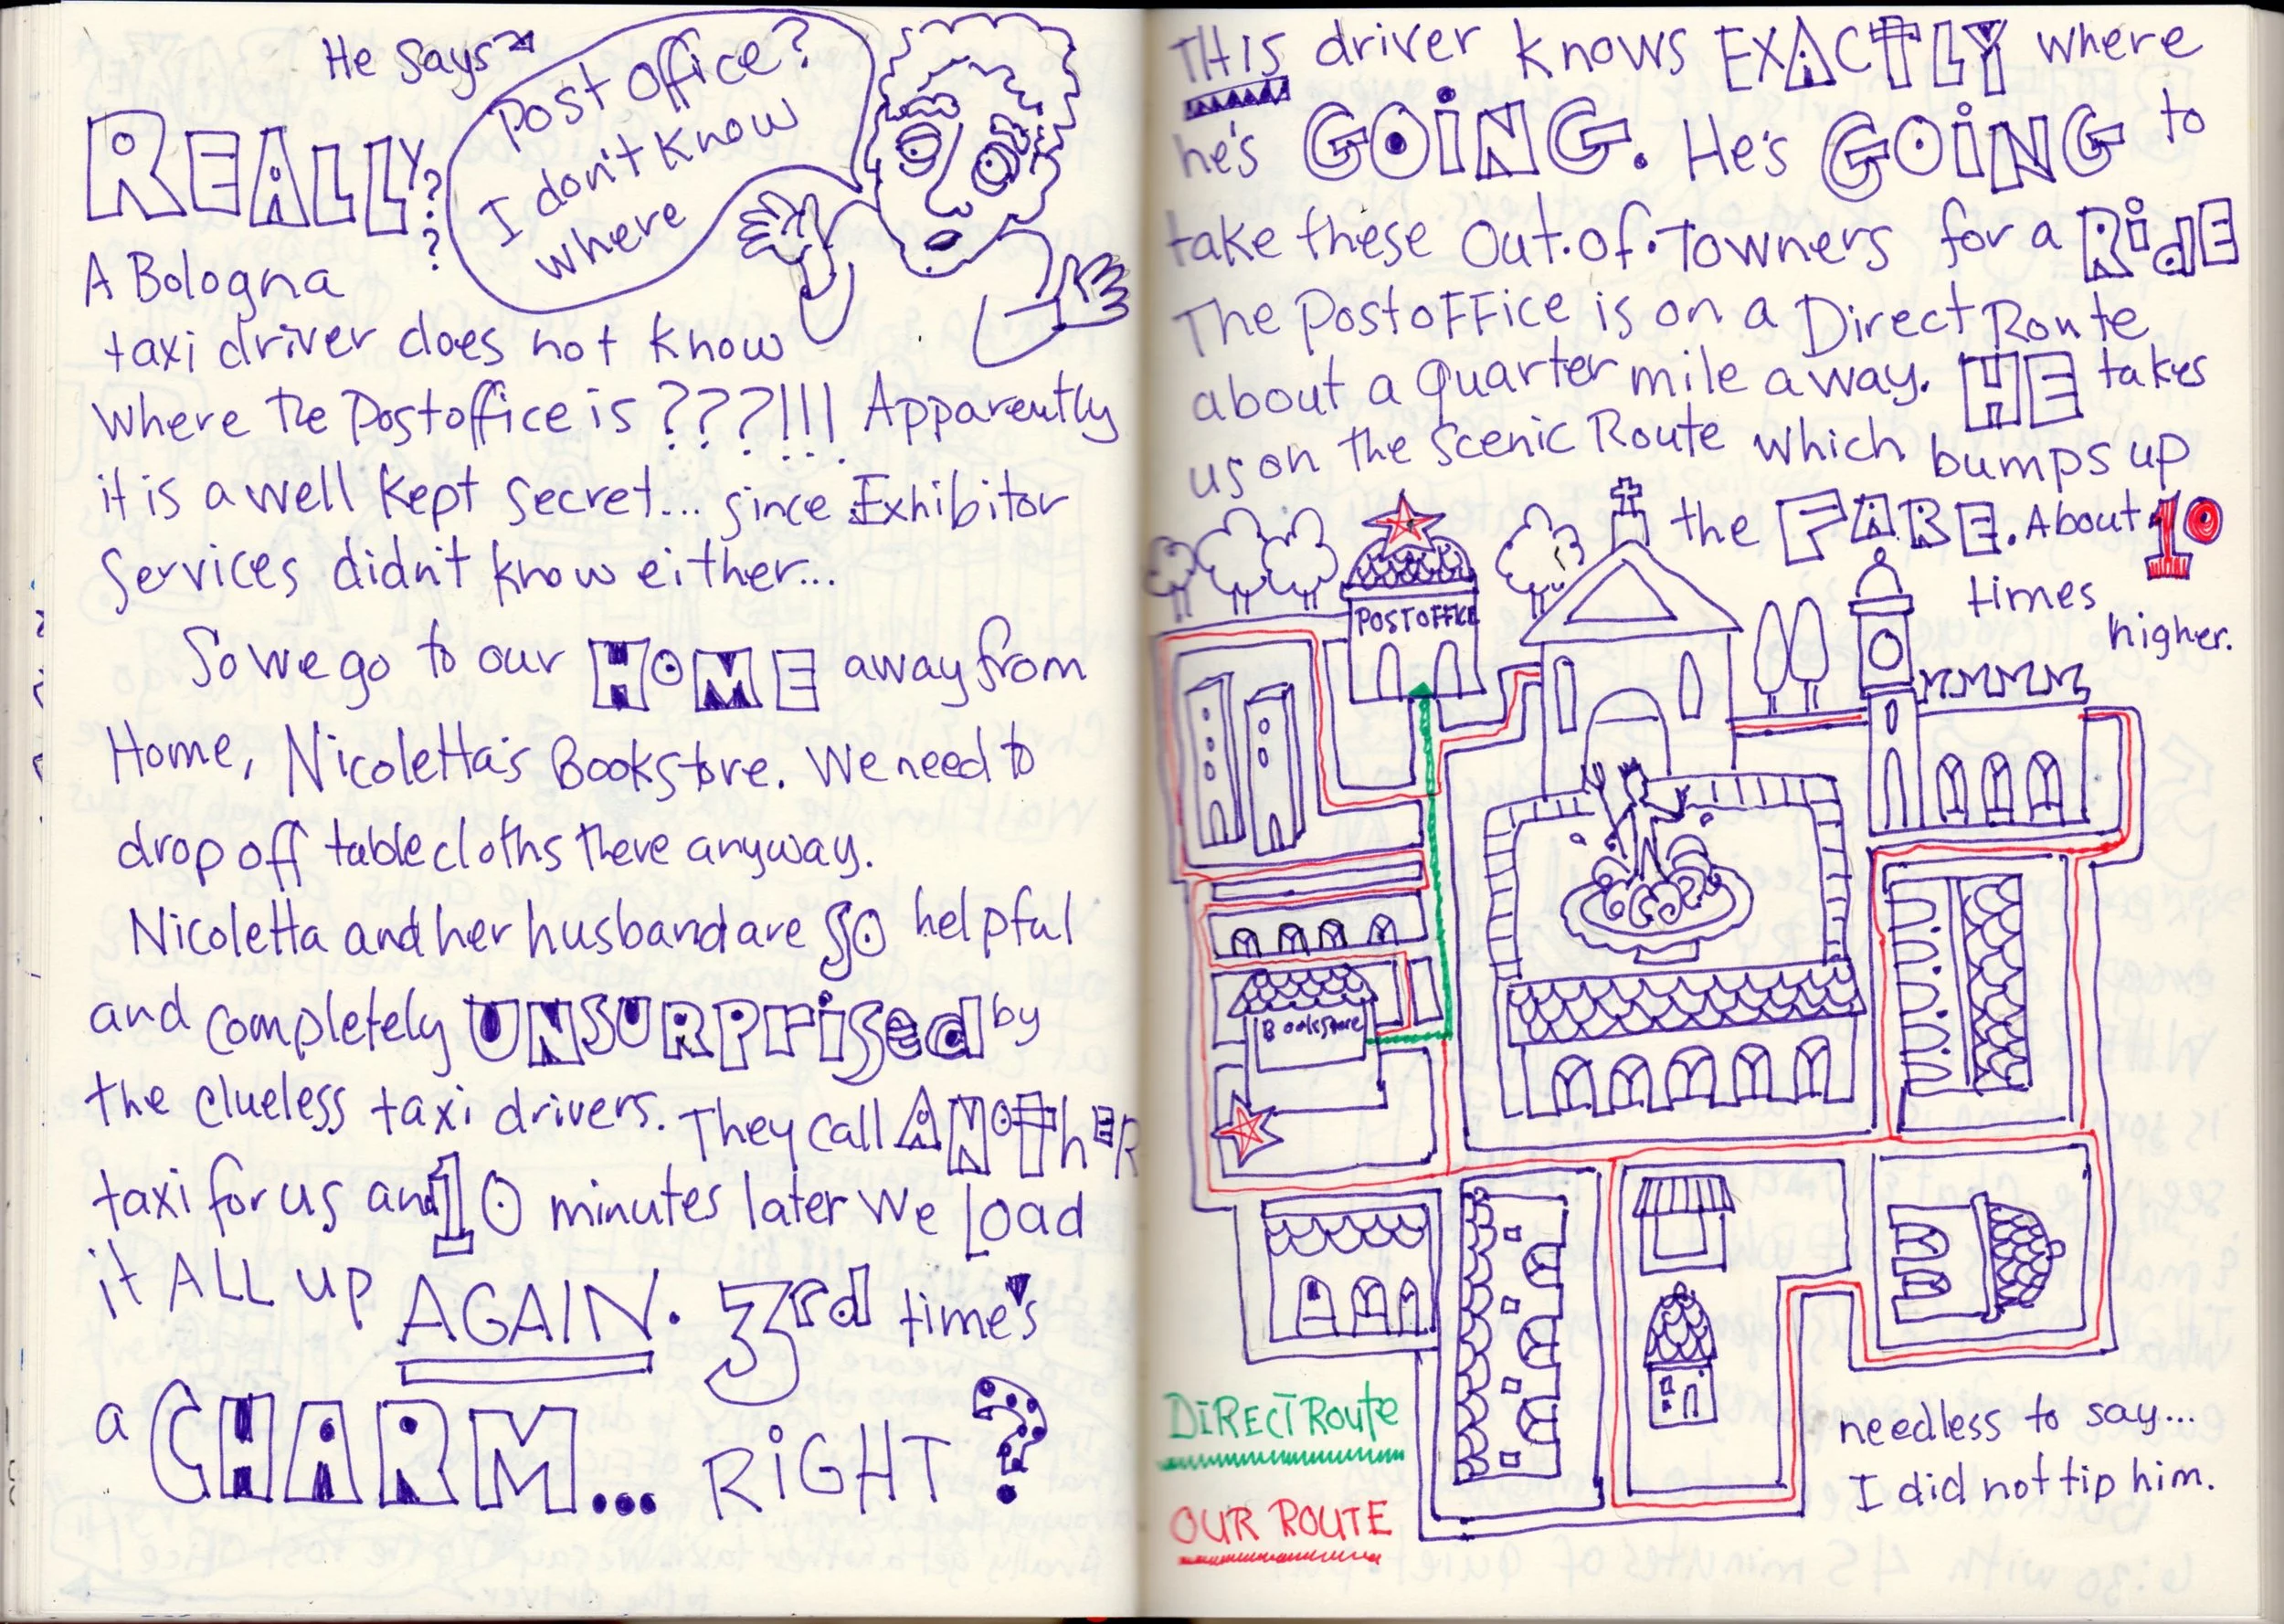 He says
Post office?
I don't know
where
REALLY???
A Bologna
taxi driver does not know
where the Postoffice is ???!!! Apparently
it is a well kept secret... since Exhibitor
Services didn't know either...
So we go to our HOME away from
Home, Nicoletta's Bookstore. We need to
drop off tablecloths there anyway.
Nicoletta and her husband are SO helpful
and completely UNSURPrised by
the clueless taxi drivers. They call ANOTHER
taxi for us and 10 minutes later we load
it ALL up AGAIN. 3rd time's
a CHARM... RiGHT?
THIS driver knows EXACTLY where
he's GOiNG. He's GOiNG to
take these Out.of.Towners for a RidE
The PostoFFice is on a Direct Route
about a quarter mile away. HE takes
us on the Scenic Route which bumps up
the FARE. About 10
times
higher.
POSTOFFICE
Bookstore
DiRECT ROUTE
OUR ROUTE
needless to say...
I did not tip him.